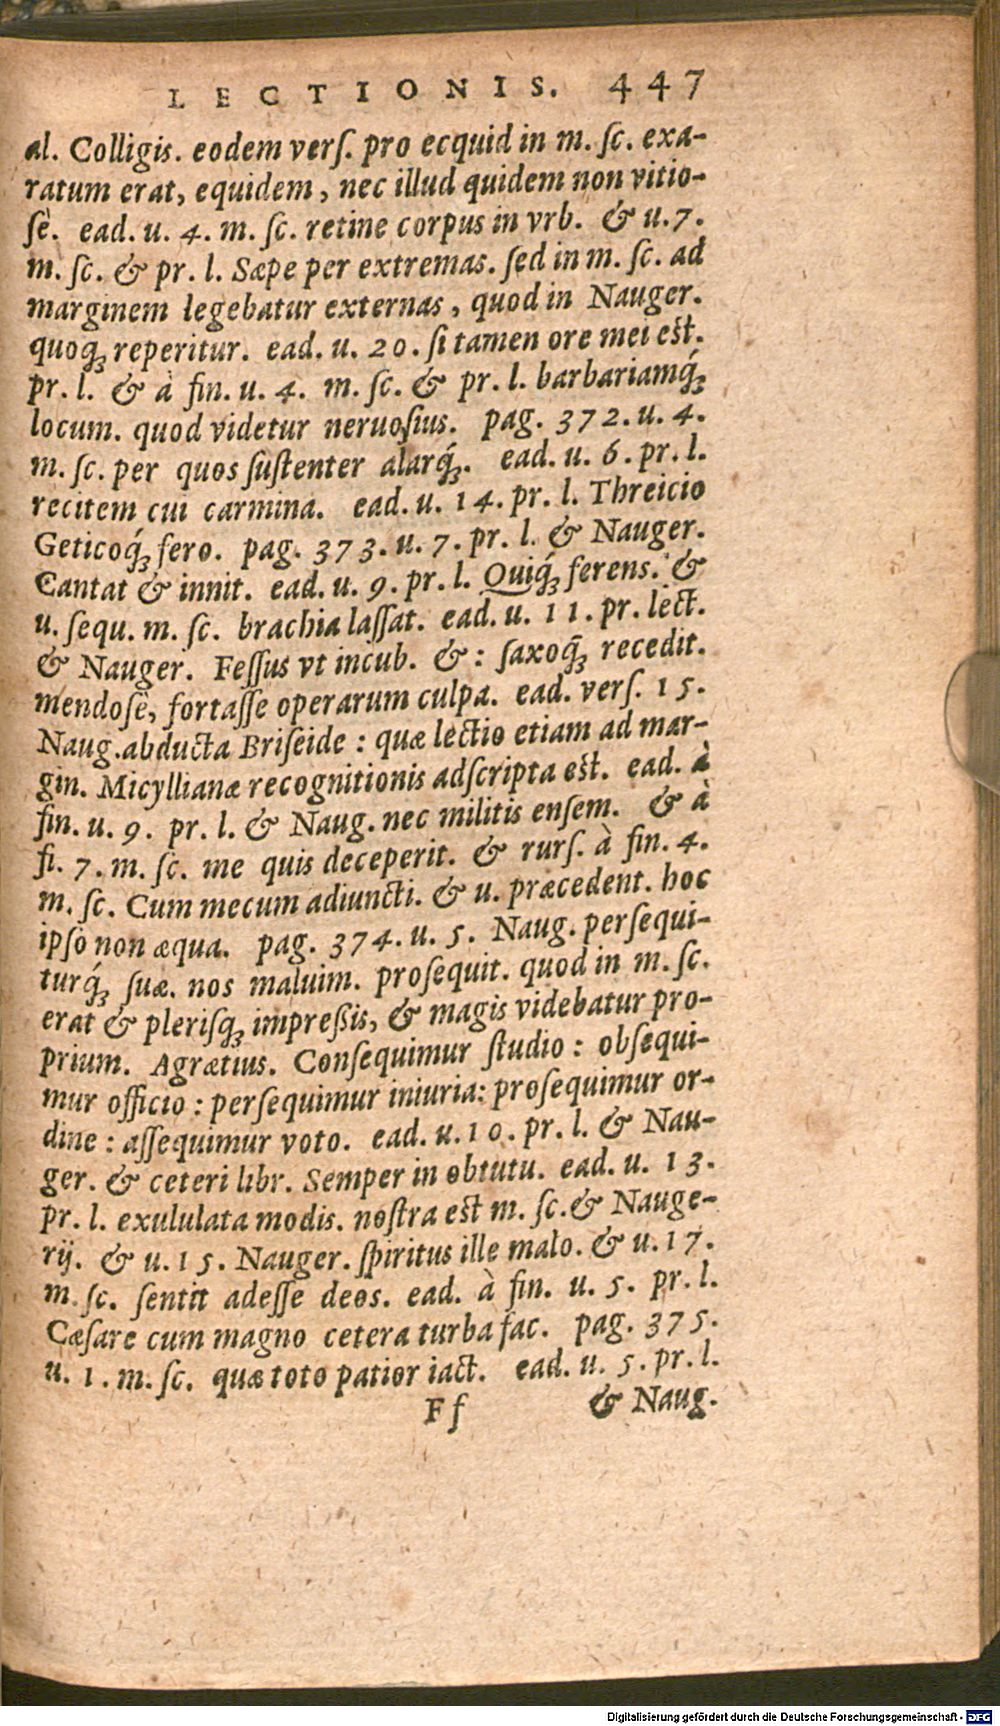 LECTIONIS. 447
al. Colligis. eodem verſ. pro ecquid in m. ſc. exa-
ratum erat, equidem, nec illud quidem non vitio-
ſè. ead. u. 4. m. ſc. retine corpus in vrb. & u. 7.
m. ſc. & pr. l. Sæpe per extremas. ſed in m. ſc. ad
marginem legebatur externas, quod in Nauger.
quoq́ꝫ reperitur. ead. u. 20. ſi tamen ore mei est.
pr. l. & à fin. u. 4. m. ſc. & pr. l. barbariamq́ꝫ
locum. quod videtur neruoſius. pag. 372. u. 4.
m. ſc. per quos ſuſtenter alarq́ꝫ. ead. u. 6. pr. l.
recitem cui carmina. ead. u. 14. pr. l. Threicio
Geticoq́ꝫ fero. pag. 373. u. 7. pr. l. & Nauger.
Cantat & innit. ead. u. 9. pr. l. Quiq́ꝫ ferens. &
u. ſequ. m. ſc. brachia laſſat. ead. u. 11. pr. lect.
& Nauger. Feſſus vt incub. & : ſaxoq̃ꝫ recedit.
mendoſè, fortaſſe operarum culpa. ead. verſ. 15.
Naug. abducta Briſeide : quæ lectio etiam ad mar-
gin. Micyllianæ recognitionis adſcripta est. ead. à
fin. u. 9. pr. l. & Naug. nec militis enſem. & à
fi. 7. m. ſc. me quis deceperit. & rurſ. à fin. 4.
m. ſc. Cum mecum adiuncti. & u. præcedent. hoc
ipſo non æqua. pag. 374. u. 5. Naug. perſequi-
turq́ꝫ ſuæ. nos maluim. proſequit. quod in m. ſc.
erat & pleriſqꝫ impreßis, & magis videbatur pro-
prium. Agrætius. Conſequimur ſtudio : obſequi-
mur officio : perſequimur iniuria: proſequimur or-
dine : aſſequimur voto. ead. u. 10. pr. l. & Nau-
ger. & ceteri libr. Semper in obtutu. ead. u. 13.
pr. l. exululata modis. noſtra est m. ſc. & Nauge-
rij. & u. 15. Nauger. ſpiritus ille malo. & u. 17.
m. ſc. ſentit adeſſe deos. ead. à fin. u. 5. pr. l.
Cæſare cum magno cetera turba fac. pag. 375.
u. 1. m. ſc. quæ toto patior iact. ead. u. 5. pr. l.
Ff & Naug.
Digitalisierung gefördert durch die Deutsche Forschungsgemeinschaft - DFG